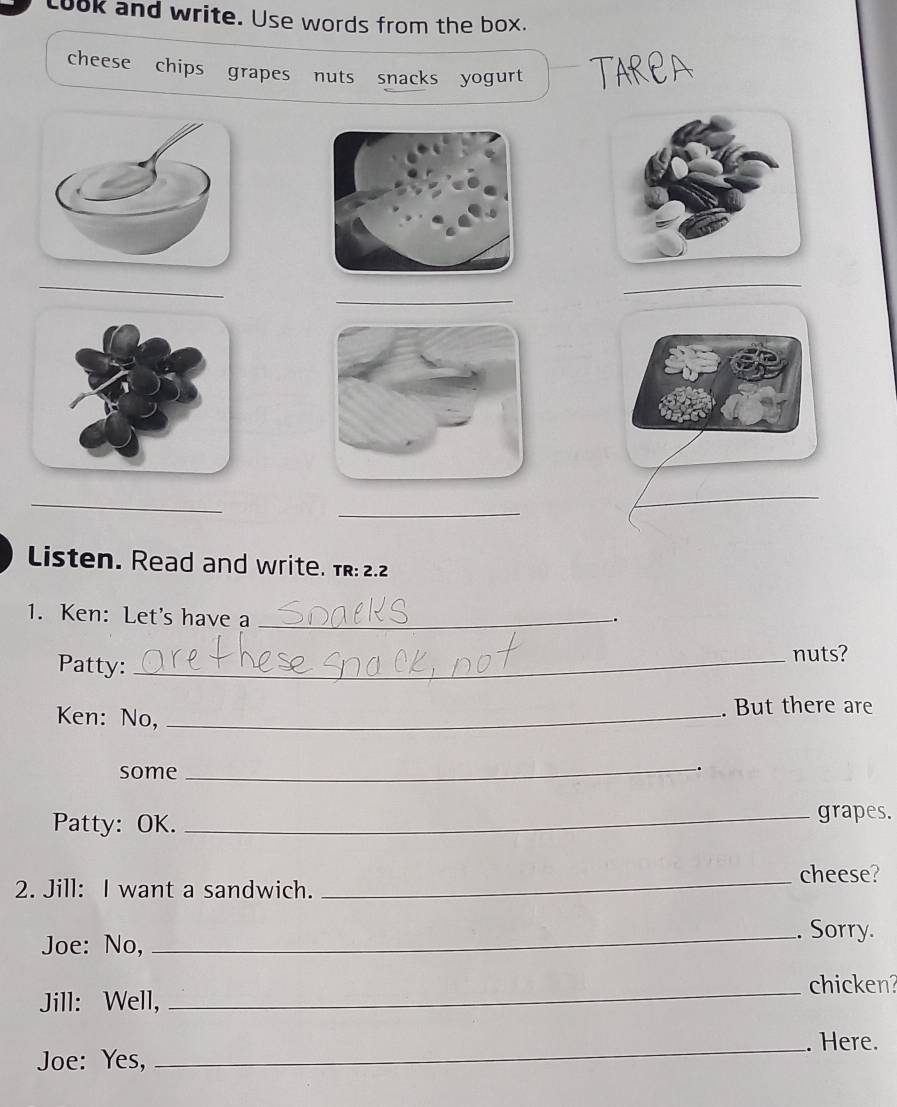 Look and write. Use words from the box.
cheese chips grapes nuts snacks yogurt
TAREA
Listen. Read and write. TR: 2.2
1. Ken: Let's have a snacks.
Patty: are these snack, not nuts?
Ken: No, . But there are
some .
Patty: OK. grapes.
2. Jill: I want a sandwich. cheese?
Joe: No, . Sorry.
Jill: Well, chicken?
Joe: Yes, . Here.